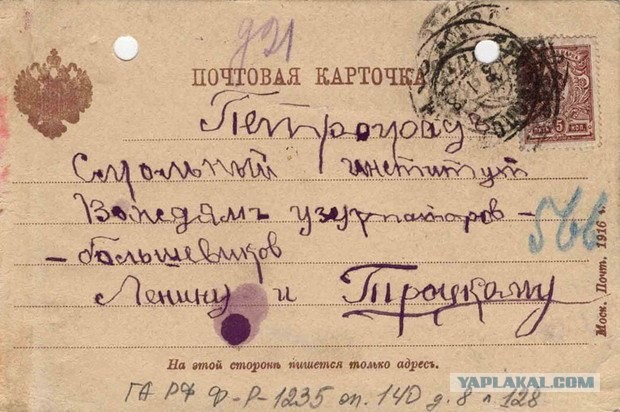 д21
ПОЧТОВАЯ КАРТОЧКА
5 КОП 5
Петроград
Смольный институт
Вождямъ узурпаторов -
- большевиков
566
Ленину и Троцкому
Моск. Почт. 1916 г.
На этой сторонѣ пишется только адресъ.
ГА РФ Ф-Р-1235 оп. 140 д. 8 л. 128
YAPLAKAL.COM